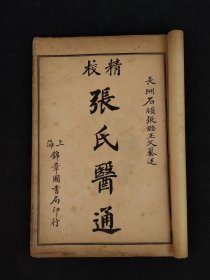 長洲石頑張璐玉父纂述
精校
張氏醫通
上海
錦章圖書局印行